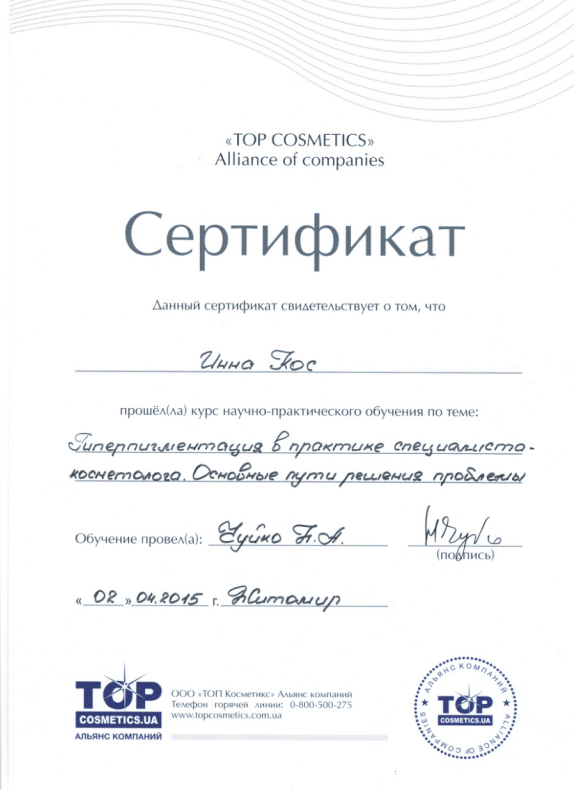 «TOP COSMETICS»
Alliance of companies
Сертификат
Данный сертификат свидетельствует о том, что
Инна Кос
прошёл(ла) курс научно-практического обучения по теме:
Гиперпигментация в практике специалиста-
косметолога. Основные пути решения проблемы
Обучение провел(а): Чуйко Н.А.
(подпись)
« 02 » 04.2015 г. Житомир
TOP
COSMETICS.UA
АЛЬЯНС КОМПАНИЙ
ООО «ТОП Косметикс» Альянс компаний
Телефон горячей линии: 0-800-500-275
www.topcosmetics.com.ua
АЛЬЯНС КОМПАНИЙ
TOP
COSMETICS.UA
ALLIANCE OF COMPANIES